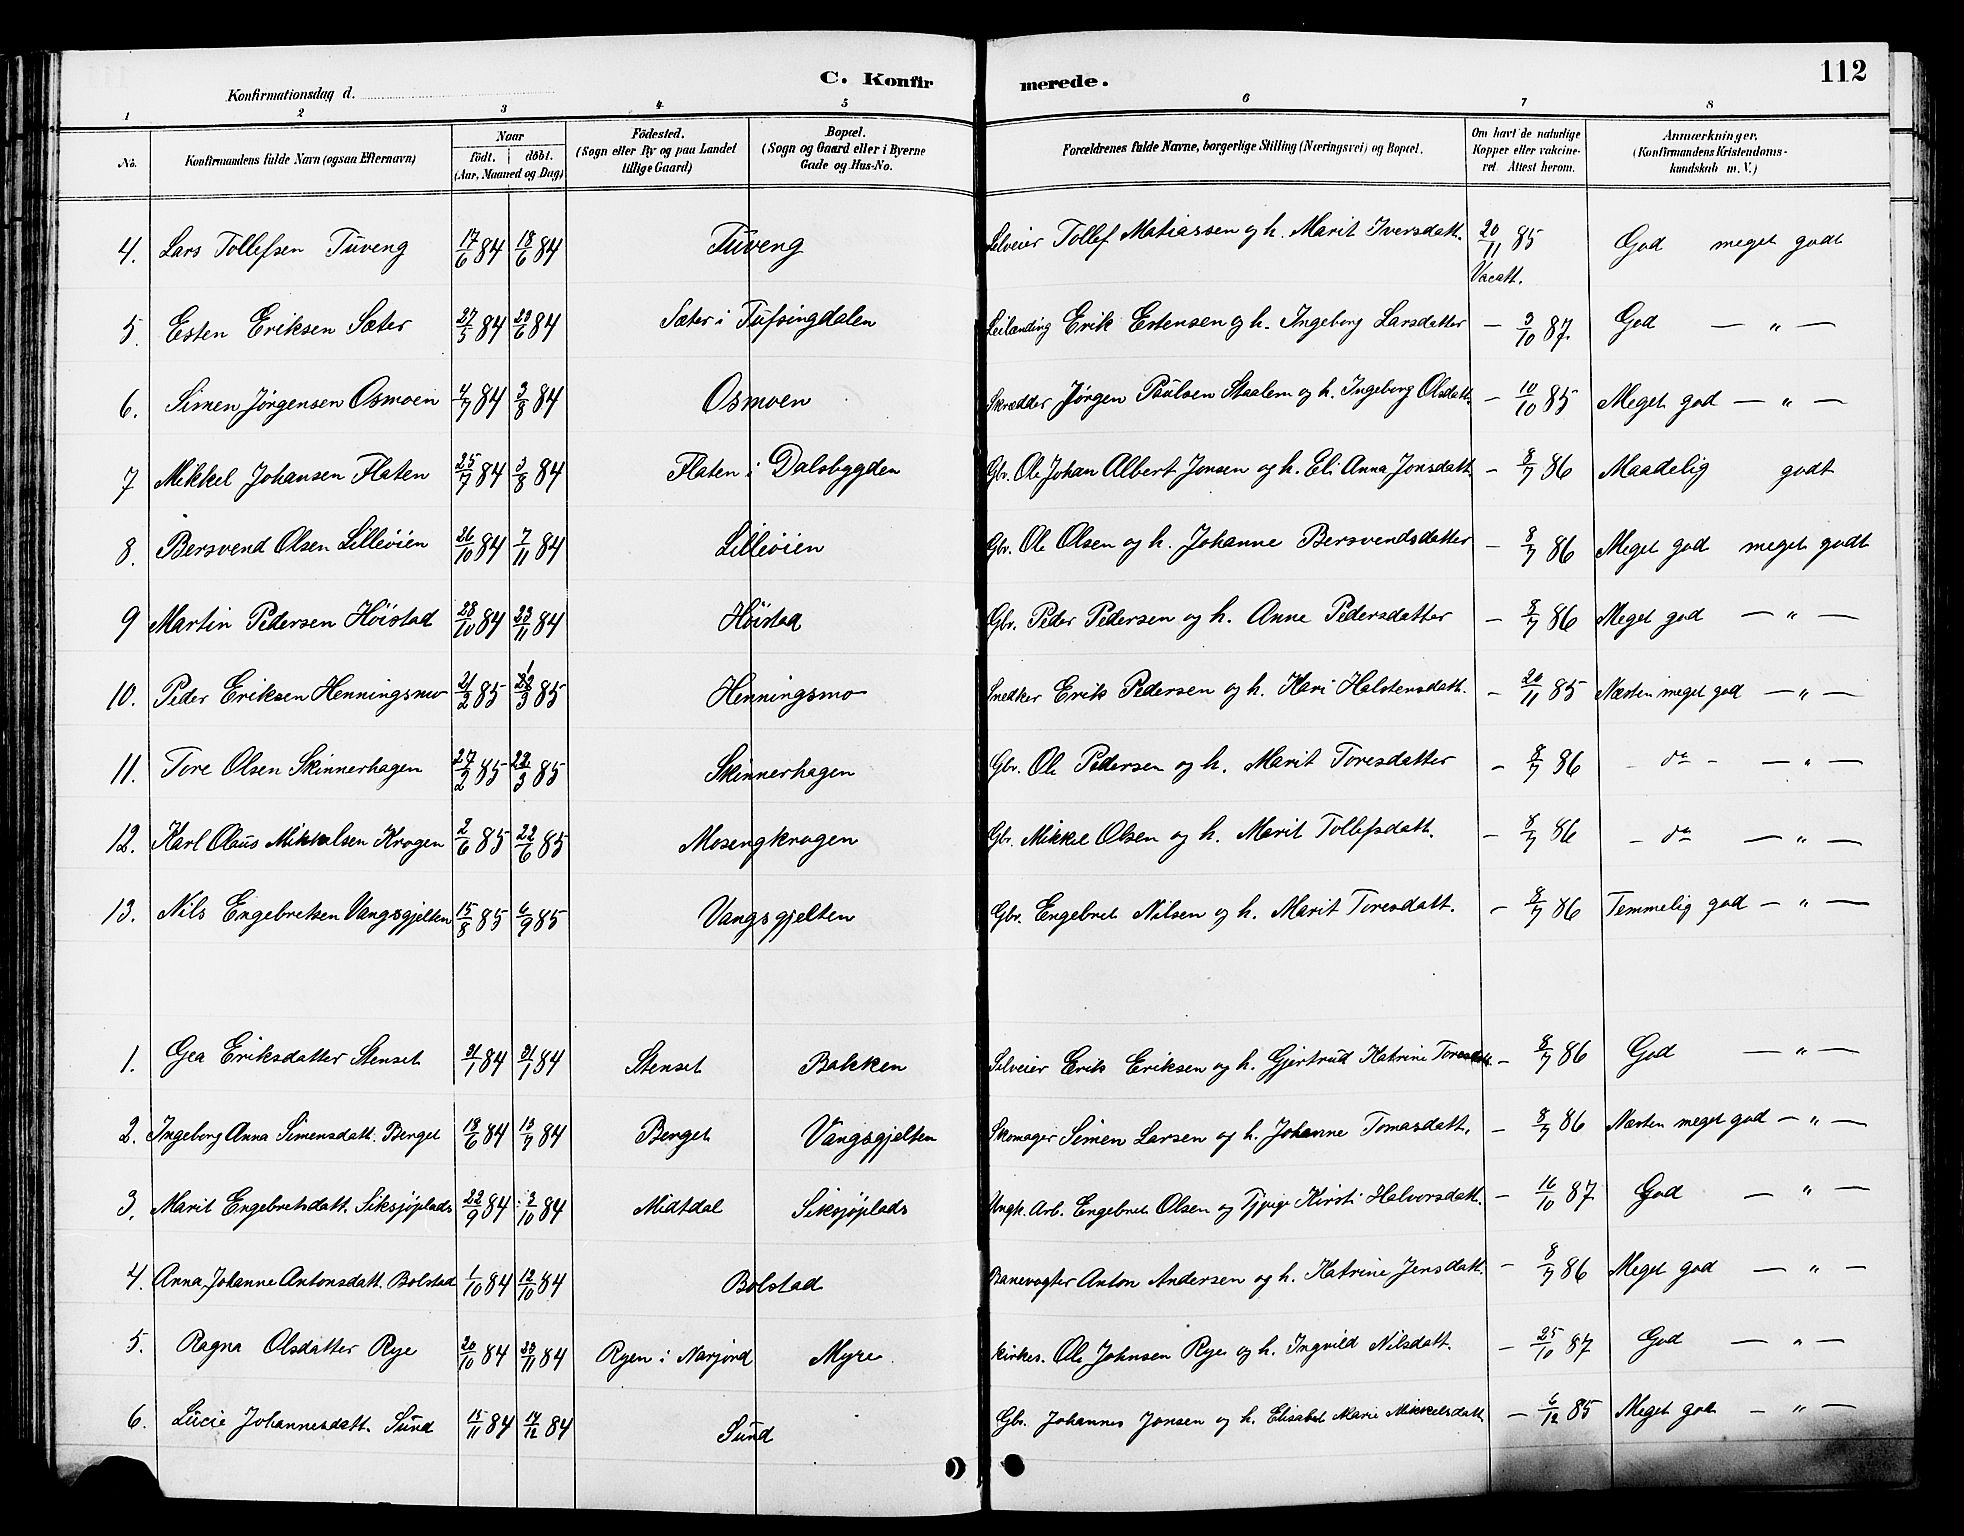 C. Konfir merede. 112
Konfirmationsdag d.
1 2 3 4 5 6 7 8
No. Konfirmandens fulde Navn (ogsaa Efternavn) Naar födt. döbt. (Aar, Maaned og Dag) Födested. (Sogn eller By og paa Landet tillige Gaard) Bopæl. (Sogn og Gaard eller i Byerne Gade og Hus-No. Forældrenes fulde Navne, borgerlige Stilling (Næringsvei) og Bopæl. Om havt de naturlige Kopper eller vakcineret. Attest herom. Anmærkninger. (Konfirmandens Kristendomskundskab m. V.)
4. Lars Tollefsen Tuveng 17/6 84 18/6 84 Tuveng Selveier Tollef Matiassen og h. Marit Iversdatt. 20/11 85 God meget godt
Vacatt.
5. Esten Eriksen Sæter 27/5 84 29/6 84 Sæter i Tufsingdalen Leilænding Erik Estensen og h. Ingeborg Larsdatter — 3/10 87. God — „ —
6. Simen Jørgensen Osmoen 4/7 84 3/8 84 Osmoen Skrædder Jørgen Paulsen Staalem og h. Ingeborg Olsdatt. — 10/10 85 Meget god — „ —
7 Mikkel Johansen Flaten 25/7 84 3/8 84 Flaten i Dalsbygden Gbr. Ole Johan Albert Jonsen og h. Eli Anna Jonsdatt. — 8/7 86 Maadelig godt
8. Bersvend Olsen Lilleøien 26/10 84 7/11 84 Lilleøien Gbr. Ole Olsen og h. Johanne Bersvendsdatter — 8/7 86 Meget god meget godt
9 Martin Pedersen Høistad 28/10 84 23/11 84 Høistad Gbr. Peder Pedersen og h. Anne Pedersdatter — 8/7 86 Meget god — „ —
10. Peder Eriksen Henningsmo 21/2 85 /3 85 Henningsmo Snedker Erik Pedersen og h. Kari Halstensdatt. — 20/11 85 Næsten meget god — „ —
11. Tore Olsen Skinnerhagen 27/2 85 22/3 85 Skinnerhagen Gbr. Ole Pedersen og h. Marit Toresdatter — 8/7 86 – do – — „ —
12. Karl Olaus Mikkelsen Krogen 2/6 85 22/6 85 Mosengkrogen Gbr. Mikkel Olsen og h. Marit Tollefsdatt. — 8/7 86 – do — „ —
13. Nils Engebretsen Vangsgjelten 15/8 85 6/9 85 Vangsgjelten Gbr. Engebret Nilsen og h. Marit Toresdatt. — 8/7 86 Temmelig god — „ —
1. Gea Eriksdatter Stenset 31/1 84 31/1 84 Stenset Bakken Selveier Erik Eriksen og h. Gjertrud Katrine Toresdatt. — 8/7 86 God — „ —
2. Ingeborg Anna Simensdatt. Berget 18/6 84 13/7 84 Berget Vangsgjelten Skomager Simen Larsen og h. Johanne Tomasdatt. — 8/7 86 Næsten meget god — „ —
3. Marit Engebretsdatt. Siksjøplads 22/9 84 2/10 84 Midtdal Siksjøplads Ungk. Arb. Engebret Olsen og Pige Kirsti Halvorsdatt. — 16/10 87 God — „ —
4. Anna Johanne Antonsdatt. Bolstad 1/10 84 12/10 84 Bolstad Banevogter Anton Andersen og h. Katrine Jensdatt. — 8/7 86 Meget god — „ —
5. Ragna Olsdatter Rye 20/10 84 23/11 84 Ryen i Narjord Myre Kirkes. Ole Johnsen Rye og h. Ingvild Nilsdatt. — 25/10 87 God — „ —
6. Lucie Johannesdatt. Sund 15/11 84 14/12 84 Sund Gbr. Johannes Jonsen og h. Elisabet Marie Mikkelsdatt. — 6/12 85 Meget god — „ —